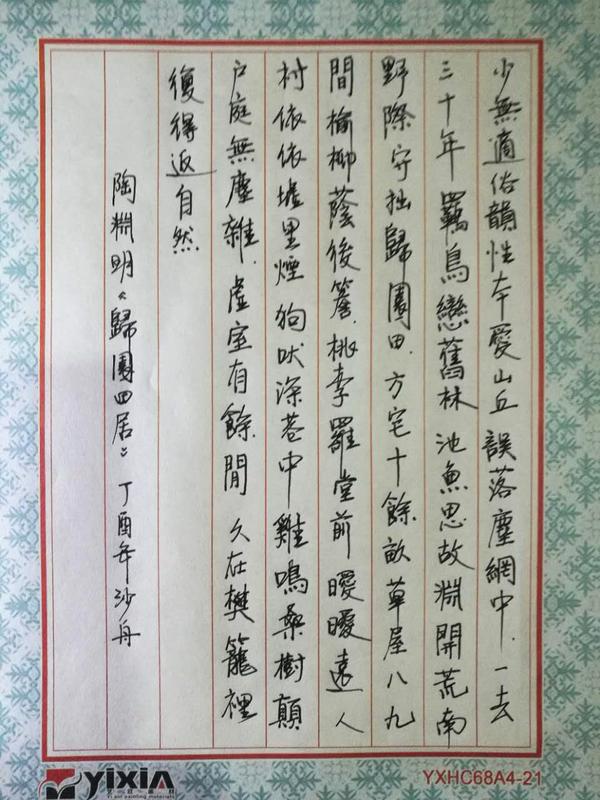 少無適俗韻性本愛山丘 誤落塵網中.一去
三十年 羈鳥戀舊林 池魚思故淵開荒南
野際守拙歸園田.方宅十餘畝草屋八九
間榆柳蔭後簷.桃李羅堂前曖曖遠人
村依依墟里煙狗吠深巷中雞鳴桑樹顛
户庭無塵雜.虛室有餘閒 久在樊籠裡
復得返自然
陶淵明《歸園四居》丁酉年沙舟
yixin
YXHC68A4-21